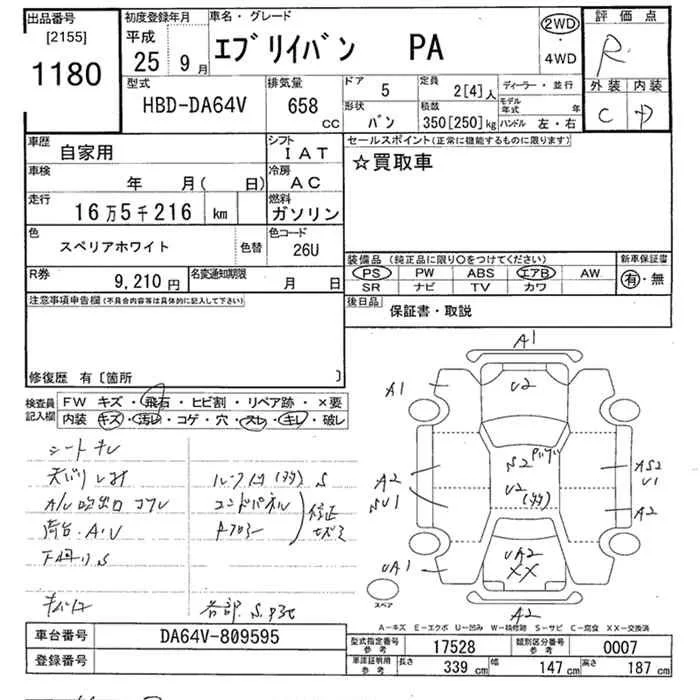 出品番号
[2155]
1180
初度登録年月
平成
25年 9月
車名・グレード
エブリイバン PA
2WD
・
4WD
評価点
R
外装 内装
C D
型式
HBD-DA64V
排気量
658 cc
ドア 5
定員 2[4]人
ディーラー・並行
形状 バン
積数 350[250]kg
モデル年式 年
ハンドル 左・右
車歴 自家用
シフト IAT
セールスポイント(正常に機能するものに限ります)
☆買取車
車検 年 月( 日)
冷房 AC
走行 16万5千216 km
燃料 ガソリン
色 スペリアホワイト 色替
色コード 26U
装備品(純正品に限り○をつけてください)
新車保証書
PS PW ABS エアB AW
有・無
SR ナビ TV カワ
R券 9,210円
名変通知期限 月 日
後日品 保証書・取説
注意事項申告欄(不具合内容等は具体的に記入して下さい)
修復歴 有〔箇所 〕
検査員記入欄
FW キズ・飛石・ヒビ割・リペア跡・×要
内装 キズ・汚レ・コゲ・穴・スレ・キレ・破レ
シートキレ
ルーフ
S
コンドパネル
修正
下廻りS
各部 S
A1
A1
U2
A2
U1
S2
U2
AS2
U1
A2
UA1
UA2
XX
A2
スペア
A-キズ E-エクボ U-凹み W-補修跡 S-サビ C-腐食 XX-交換済
車台番号 DA64V-809595
型式指定番号 参考 17528
類別区分番号 参考 0007
登録番号
車庫証明用 参考
長さ 339 cm
幅 147 cm
高さ 187 cm